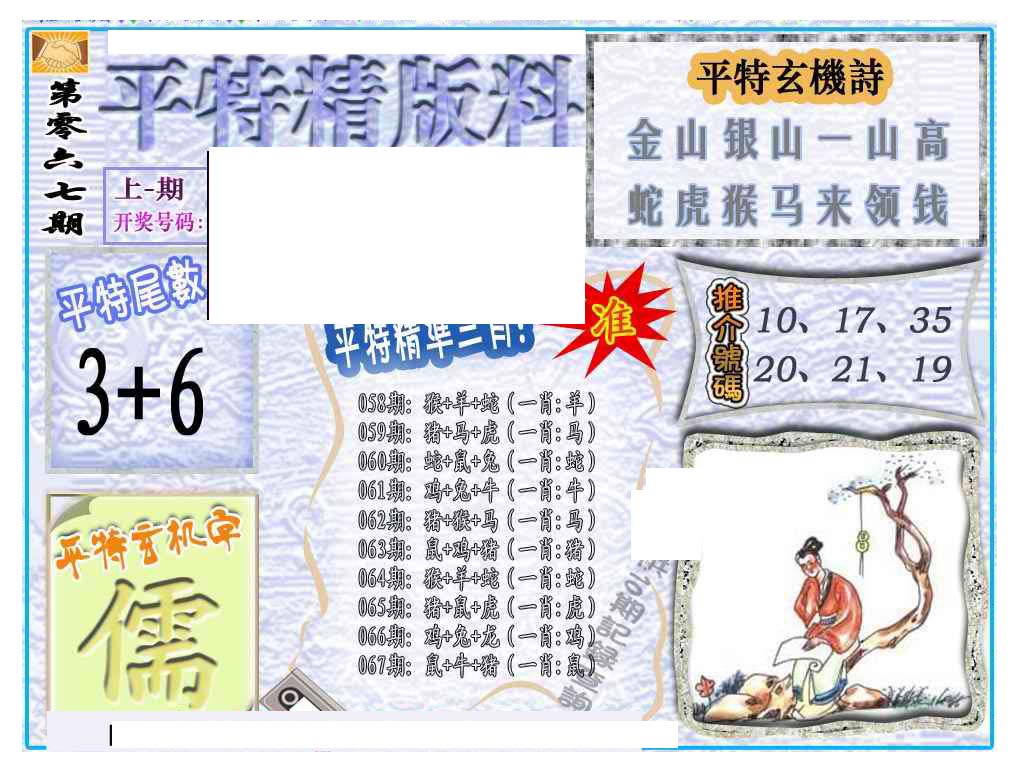 第零六七期
平特精版料
上-期
开奖号码:
平特玄機詩
金山银山一山高
蛇虎猴马来领钱
平特尾數
3+6
平特精準三肖:
准
推介號碼
10、17、35
20、21、19
058期: 猴+羊+蛇（一肖:羊）
059期: 猪+马+虎（一肖:马）
060期: 蛇+鼠+兔（一肖:蛇）
061期: 鸡+兔+牛（一肖:牛）
062期: 猪+猴+马（一肖:马）
063期: 鼠+鸡+猪（一肖:猪）
064期: 猴+羊+蛇（一肖:蛇）
065期: 猪+鼠+虎（一肖:虎）
066期: 鸡+兔+龙（一肖:鸡）
067期: 鼠+牛+猪（一肖:鼠）
平特玄机字
儒
期記錄查詢